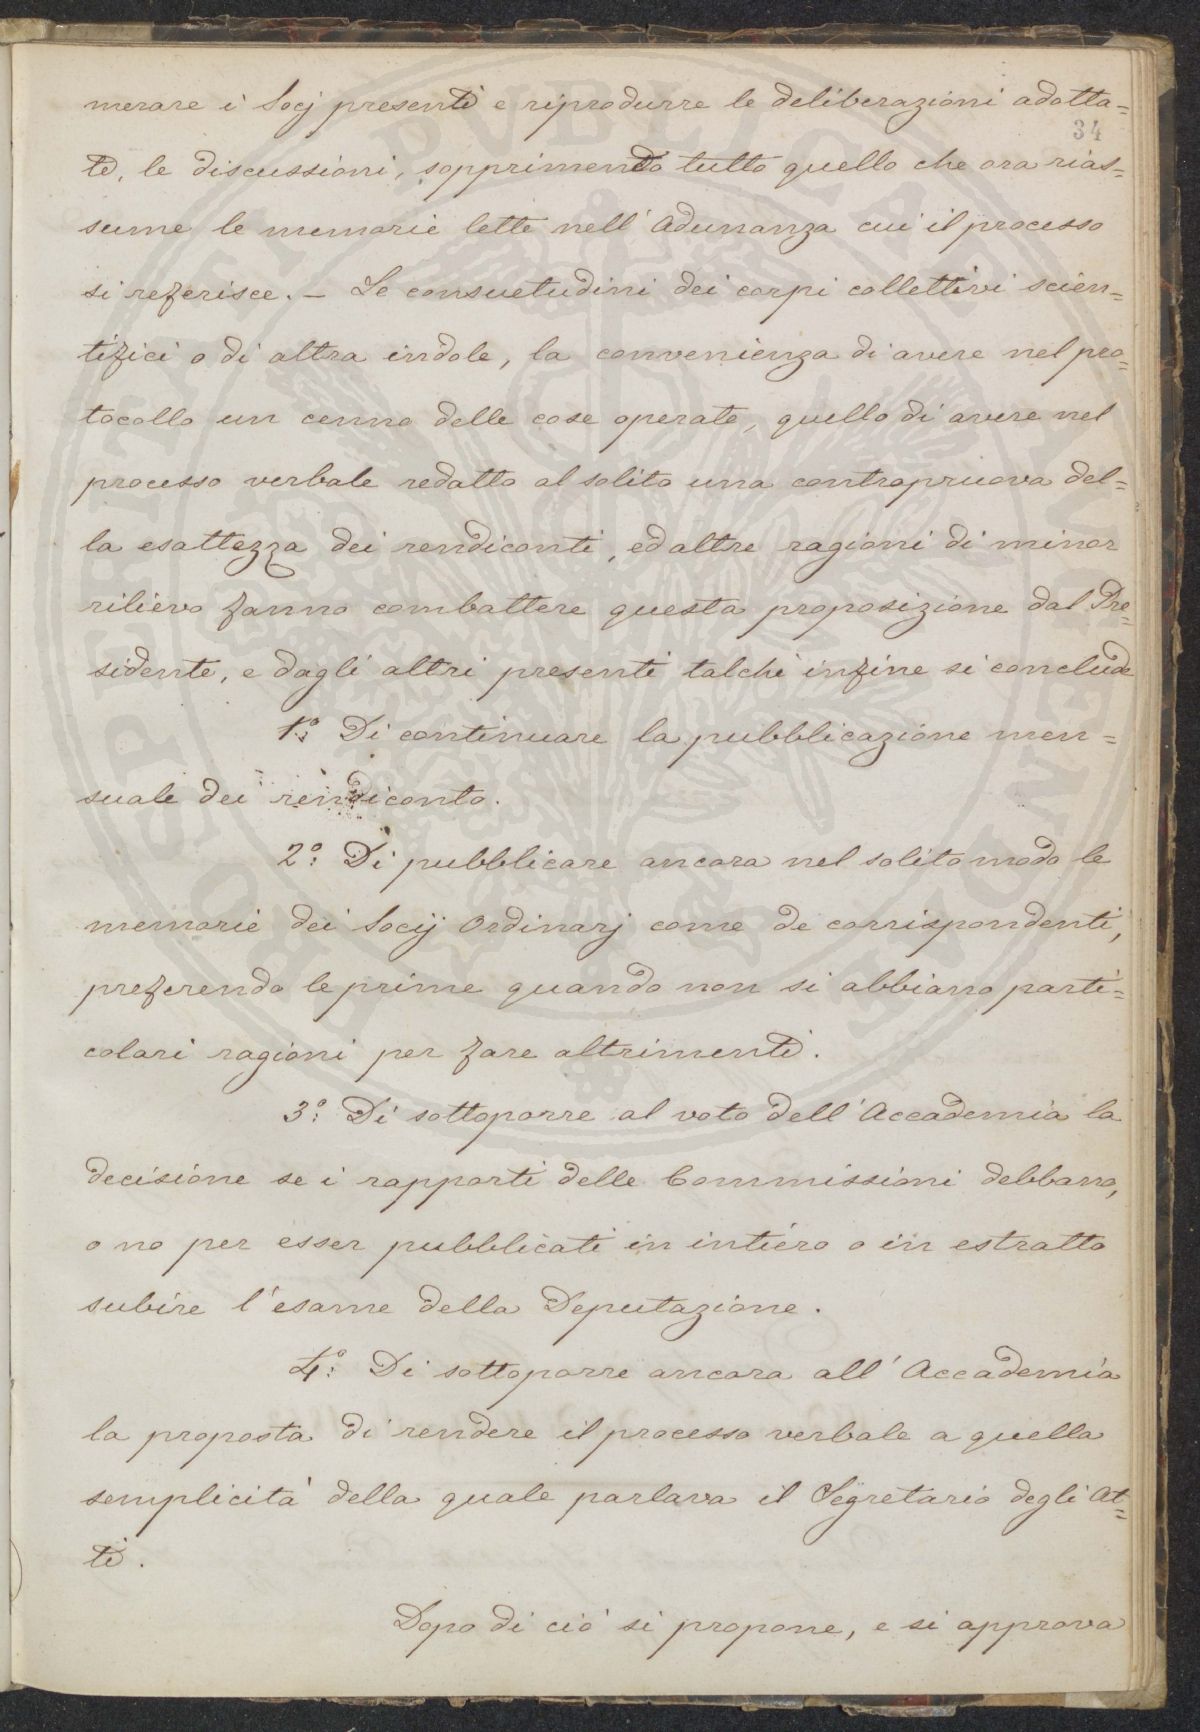 merare i Socj presenti e riprodurre le deliberazioni adotta=
34
te, le discussioni, sopprimendo tutto quello che ora rias=
sume le memorie lette nell'Adunanza cui il processo
si referisce. — Le consuetudini dei corpi collettivi scien=
tifici o di altra indole, la convenienza di avere nel pro=
tocollo un cenno delle cose operate, quello di avere nel
processo verbale redatto al solito una contropruova del=
la esattezza dei rendiconti, ed altre ragioni di minor
rilievo fanno combattere questa proposizione dal Pre=
sidente, e dagli altri presenti talchè infine si conclude
1°: Di continuare la pubblicazione men=
suale dei rendiconto.
2°: Di pubblicare ancora nel solito modo le
memorie dei Socij Ordinarj come de corrispondenti,
preferendo le prime quando non si abbiano parti=
colari ragioni per fare altrimenti.
3°: Di sottoporre al voto dell'Accademia la
decisione se i rapporti delle Commissioni debbano,
o no per esser pubblicati in intiero o in estratto
subire l'esame della Deputazione.
4°: Di sottoporre ancora all'Accademia
la proposta di rendere il processo verbale a quella
semplicità della quale parlava il Segretario degli At=
ti.
Dopo di ciò si propone, e si approva